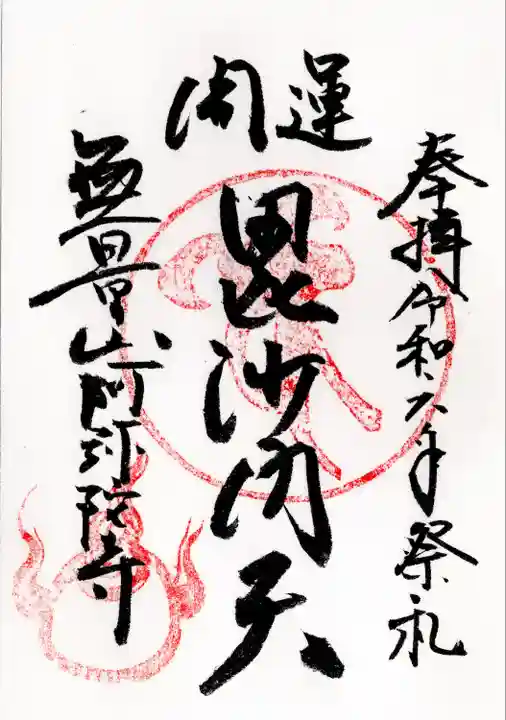 奉拝 令和六年祭礼
開運
毘沙門天
無量山阿弥陀寺